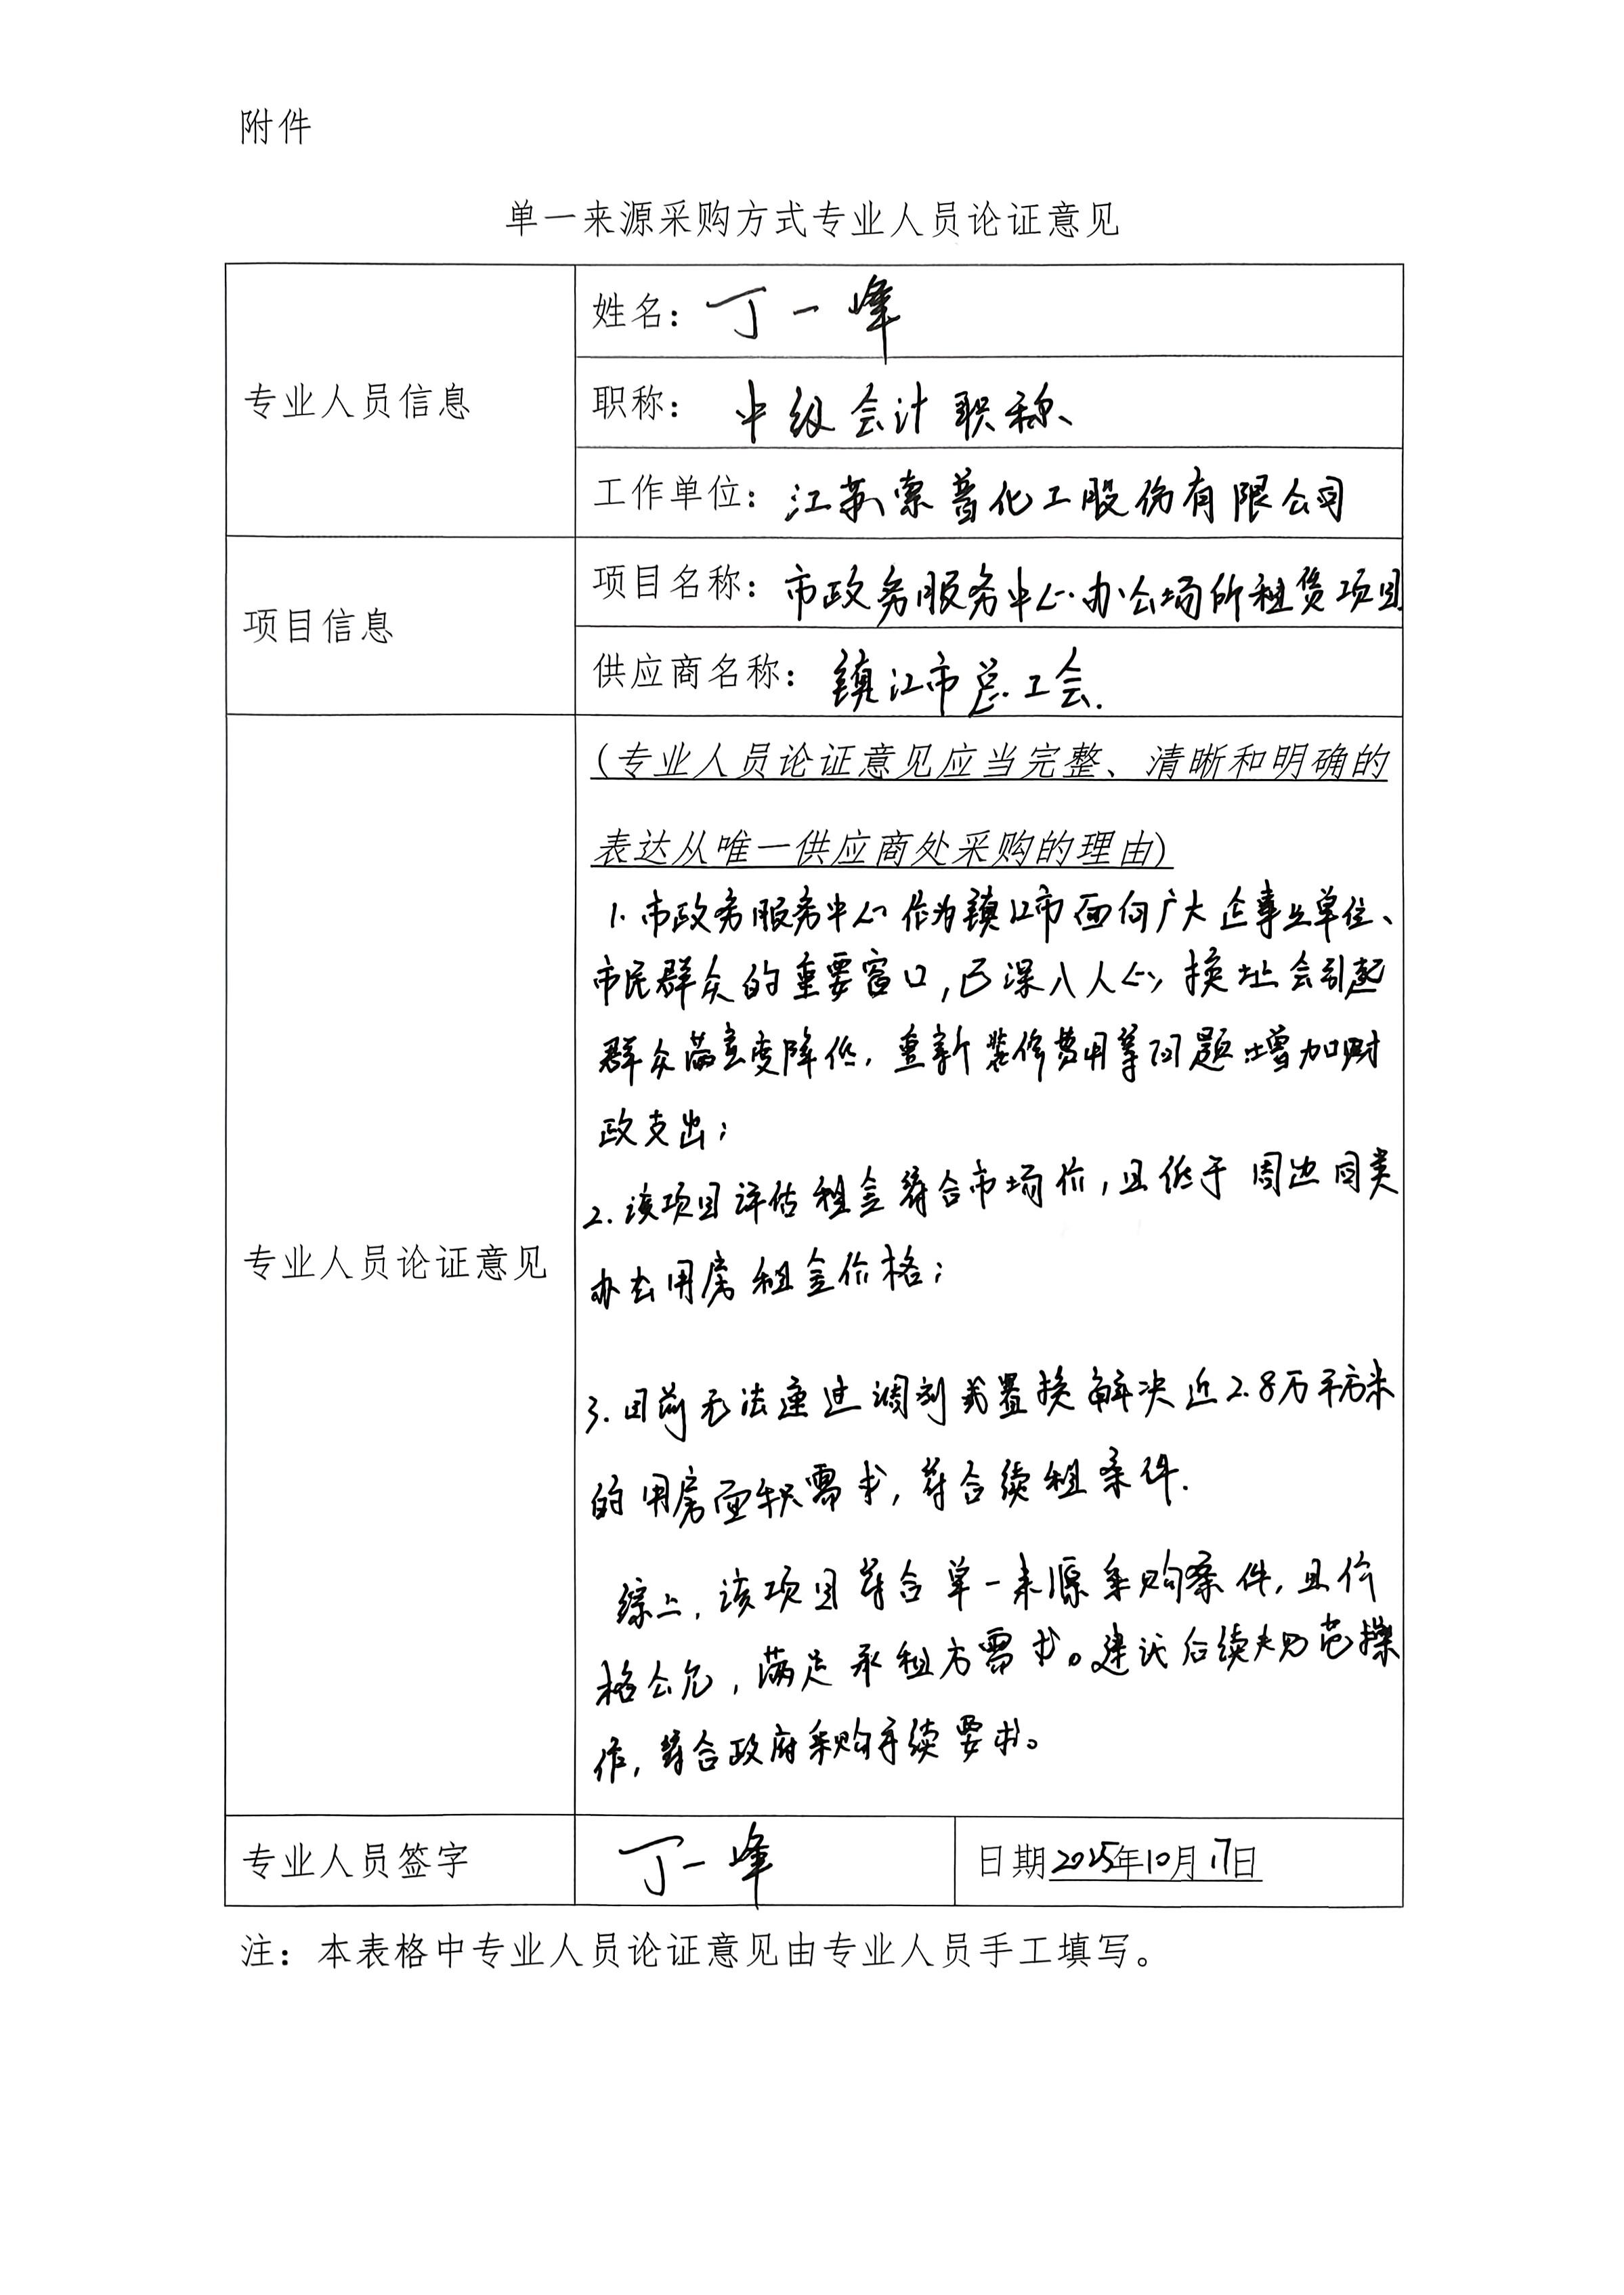 附件
单一来源采购方式专业人员论证意见
专业人员信息
姓名：丁一峰
职称：中级会计职称
工作单位：江苏索普化工股份有限公司
项目信息
项目名称：市政务服务中心办公场所租赁项目
供应商名称：镇江市总工会.
专业人员论证意见
(专业人员论证意见应当完整、清晰和明确的
表达从唯一供应商处采购的理由)
1.市政务服务中心作为镇江市面向广大企事业单位、
市民群众的重要窗口,已深入人心,换址会引起
群众满意度降低,重新装修费用等问题增加财
政支出;
2.该项目评估租金符合市场价,且低于周边同类
办公用房租金价格;
3.目前无法通过调剂或置换解决近2.8万平方米
的用房面积需求,符合续租条件.
综上,该项目符合单一来源采购条件,且价
格公允,满足承租方需求。建议后续规范操
作,符合政府采购手续要求。
专业人员签字
丁一峰
日期2025年10月17日
注：本表格中专业人员论证意见由专业人员手工填写。